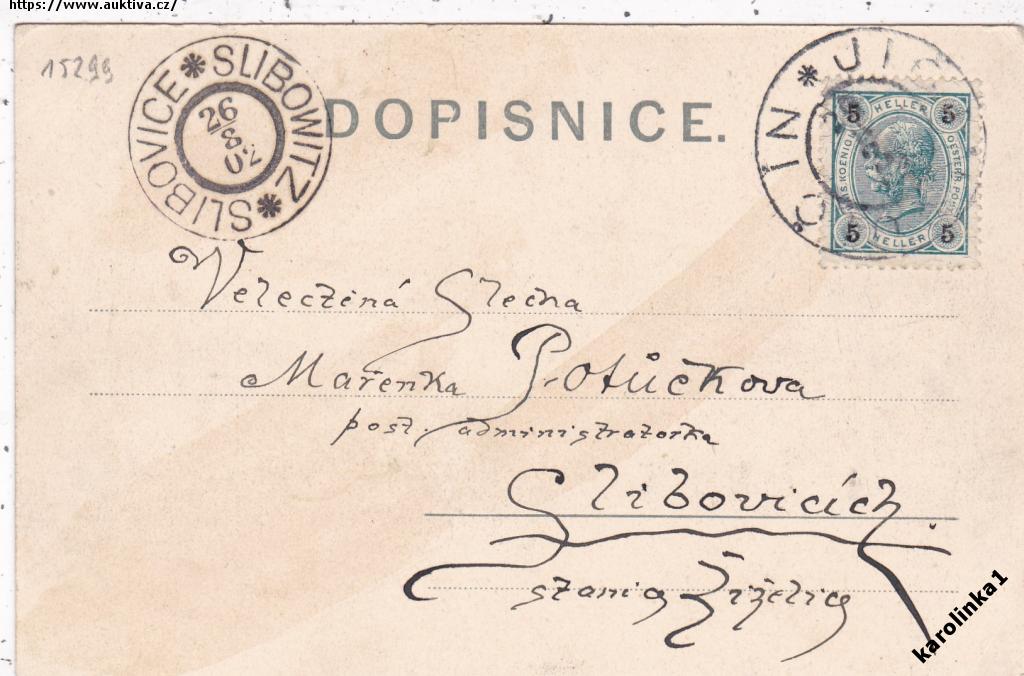 https://www.auktiva.cz/
15299
SLIBOWITZ * SLIBOVICE *
26
8
02
DOPISNICE.
JIČÍN *
5 HELLER 5
5 HELLER 5
Velectěná Slečna
Mařenka Potůčkova
post. administratorka
Slibovicích
stanice Žiželice
karolinka1